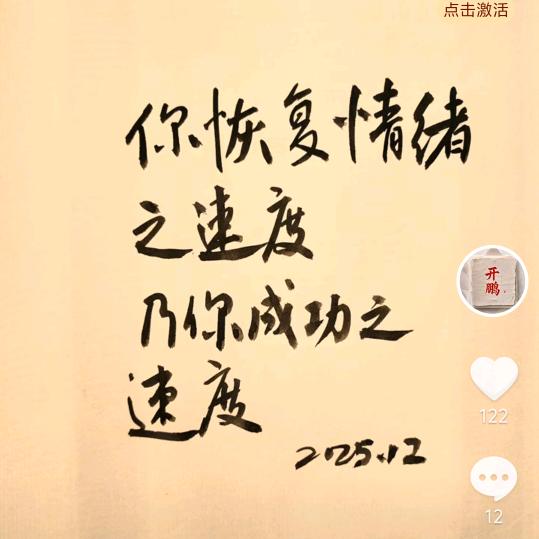 点击激活
你恢复情绪
之速度
乃你成功之
速度
2025.12
开
鹏
122
12